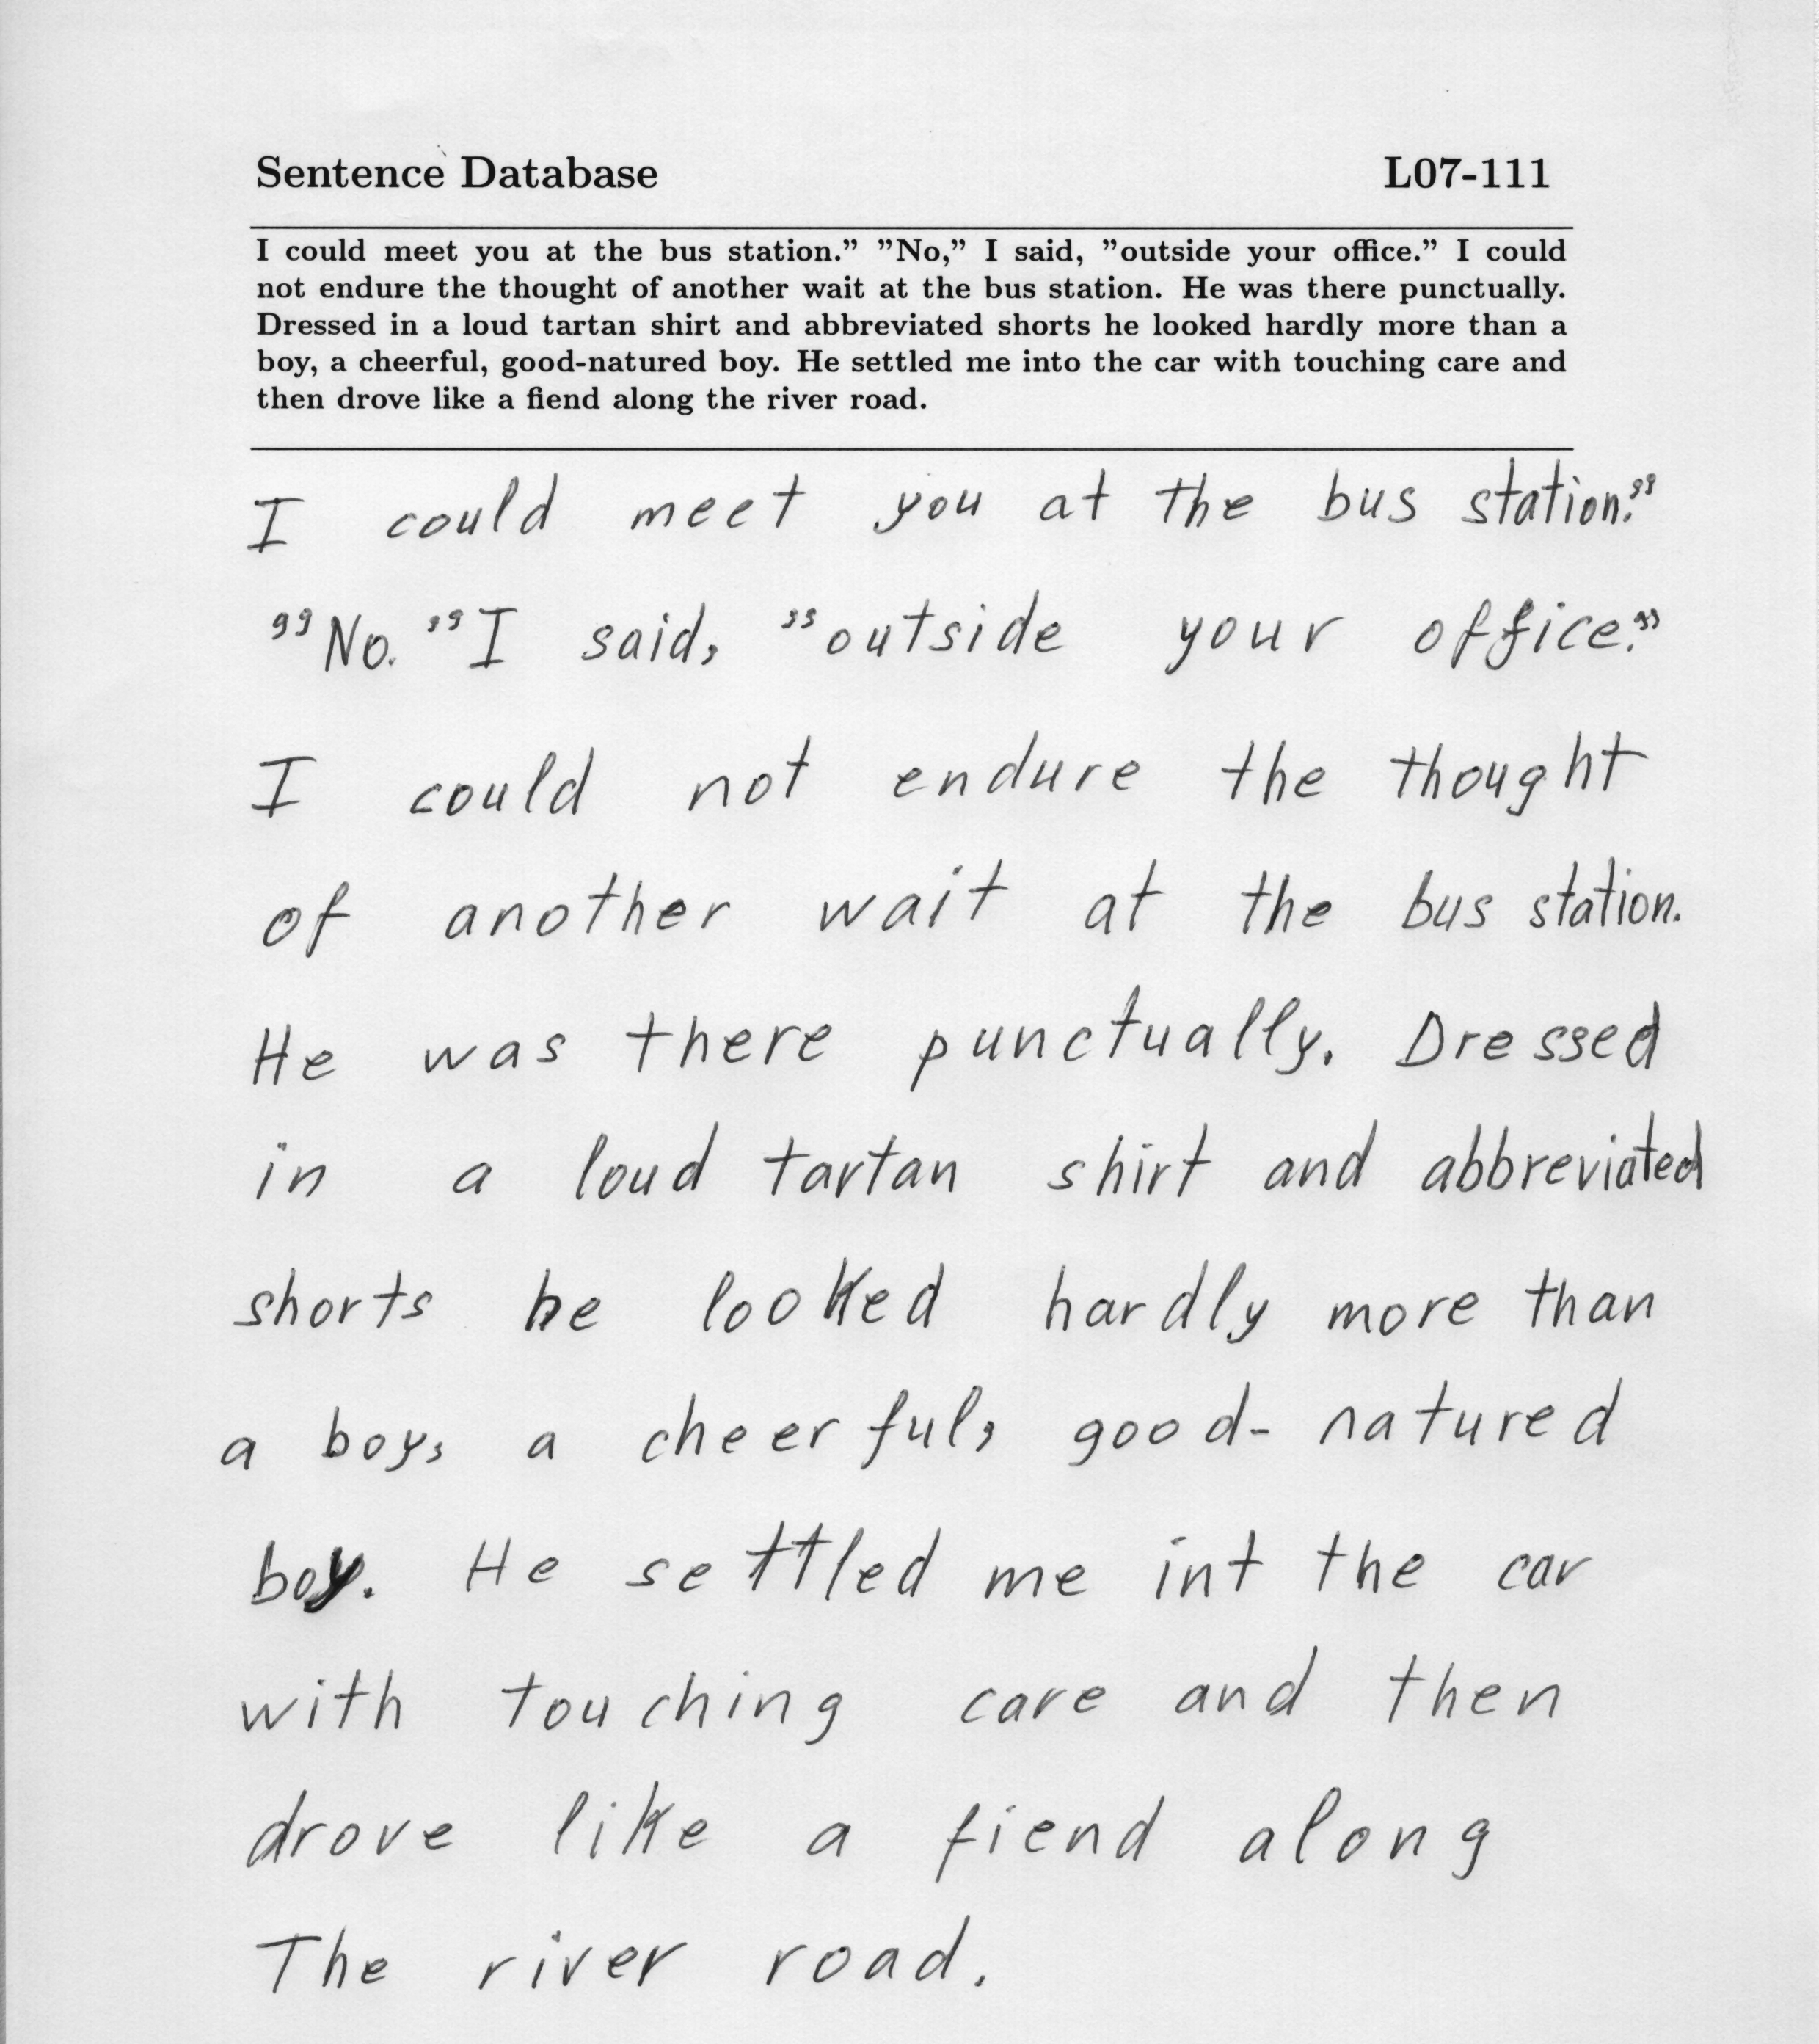 Sentence Database L07-111
I could meet you at the bus station.” ”No,” I said, ”outside your office.” I could
not endure the thought of another wait at the bus station. He was there punctually.
Dressed in a loud tartan shirt and abbreviated shorts he looked hardly more than a
boy, a cheerful, good-natured boy. He settled me into the car with touching care and
then drove like a fiend along the river road.
I could meet you at the bus station.”
”No.” I said, ”outside your office.”
I could not endure the thought
of another wait at the bus station.
He was there punctually. Dressed
in a loud tartan shirt and abbreviated
shorts he looked hardly more than
a boy, a cheerful, good-natured
boy. He settled me int the car
with touching care and then
drove like a fiend along
The river road.